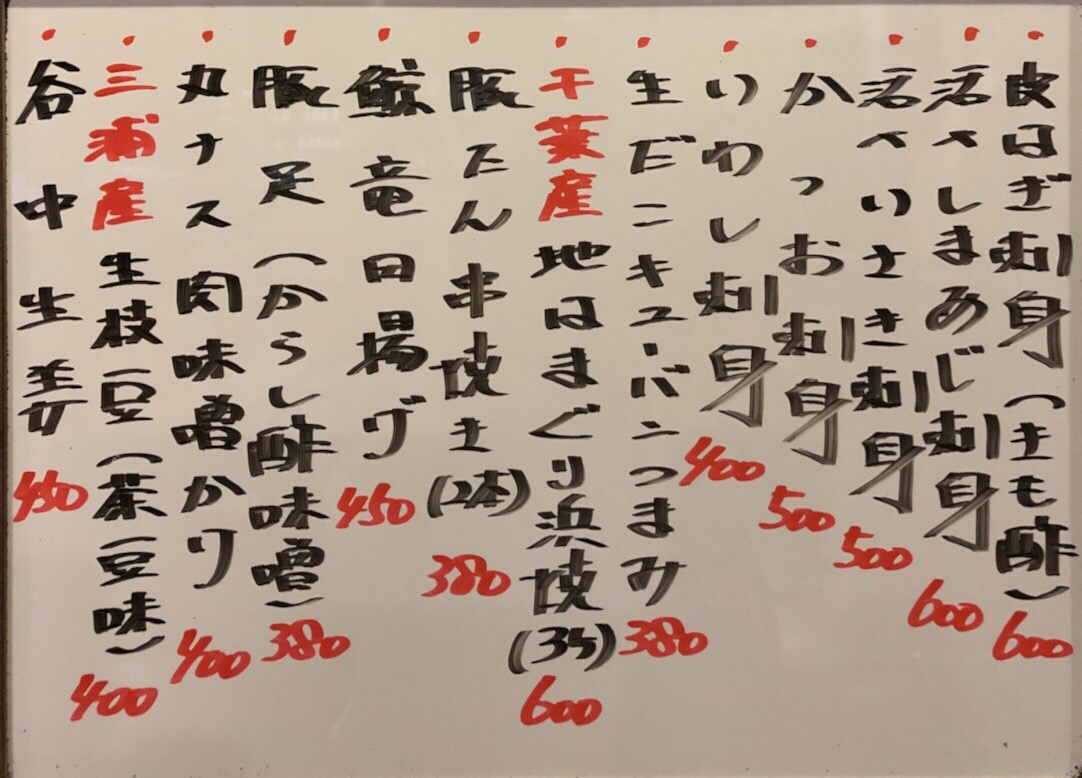 皮はぎ刺身(きも酢) 600
活〆しまあじ刺身 600
活〆いさき刺身 500
かつお刺身 500
いわし刺身 400
生だこキューバンつまみ 380
千葉産地はまぐり浜焼(3ケ) 600
豚たん串焼き(2本) 380
鯨竜田揚げ 450
豚足(からし酢味噌) 380
丸ナス肉味噌かけ 400
三浦産生枝豆(茶豆味) 400
谷中生姜 450